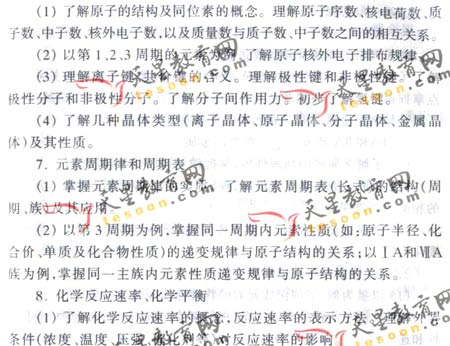 (1) 了解原子的结构及同位素的概念。理解原子序数、核电荷数、质
子数、中子数、核外电子数,以及质量数与质子数、中子数之间的相互关系。
(2) 以第1,2,3周期的元素为例,了解原子核外电子排布规律。
(3) 理解离子键、共价键的含义。理解极性键和非极性键。
极性分子和非极性分子。了解分子间作用力。初步了解氢键。
(4) 了解几种晶体类型(离子晶体、原子晶体、分子晶体、金属晶
体)及其性质。
7. 元素周期律和周期表
(1) 掌握元素周期律的实质。了解元素周期表(长式)的结构(周
期、族)及其应用。
(2) 以第3周期为例,掌握同一周期内元素性质(如:原子半径、化
合价、单质及化合物性质)的递变规律与原子结构的关系;以ⅠA和ⅦA
族为例,掌握同一主族内元素性质递变规律与原子结构的关系。
8. 化学反应速率、化学平衡
(1) 了解化学反应速率的概念,反应速率的表示方法,理解外界
条件(浓度、温度、压强、催化剂等)对反应速率的影响
天星教育网
tesoon.com
天星教育网
tesoon.com
天星教育网
tesoon.com
天星教育网
tesoon.com
天星教育网
天星教育网